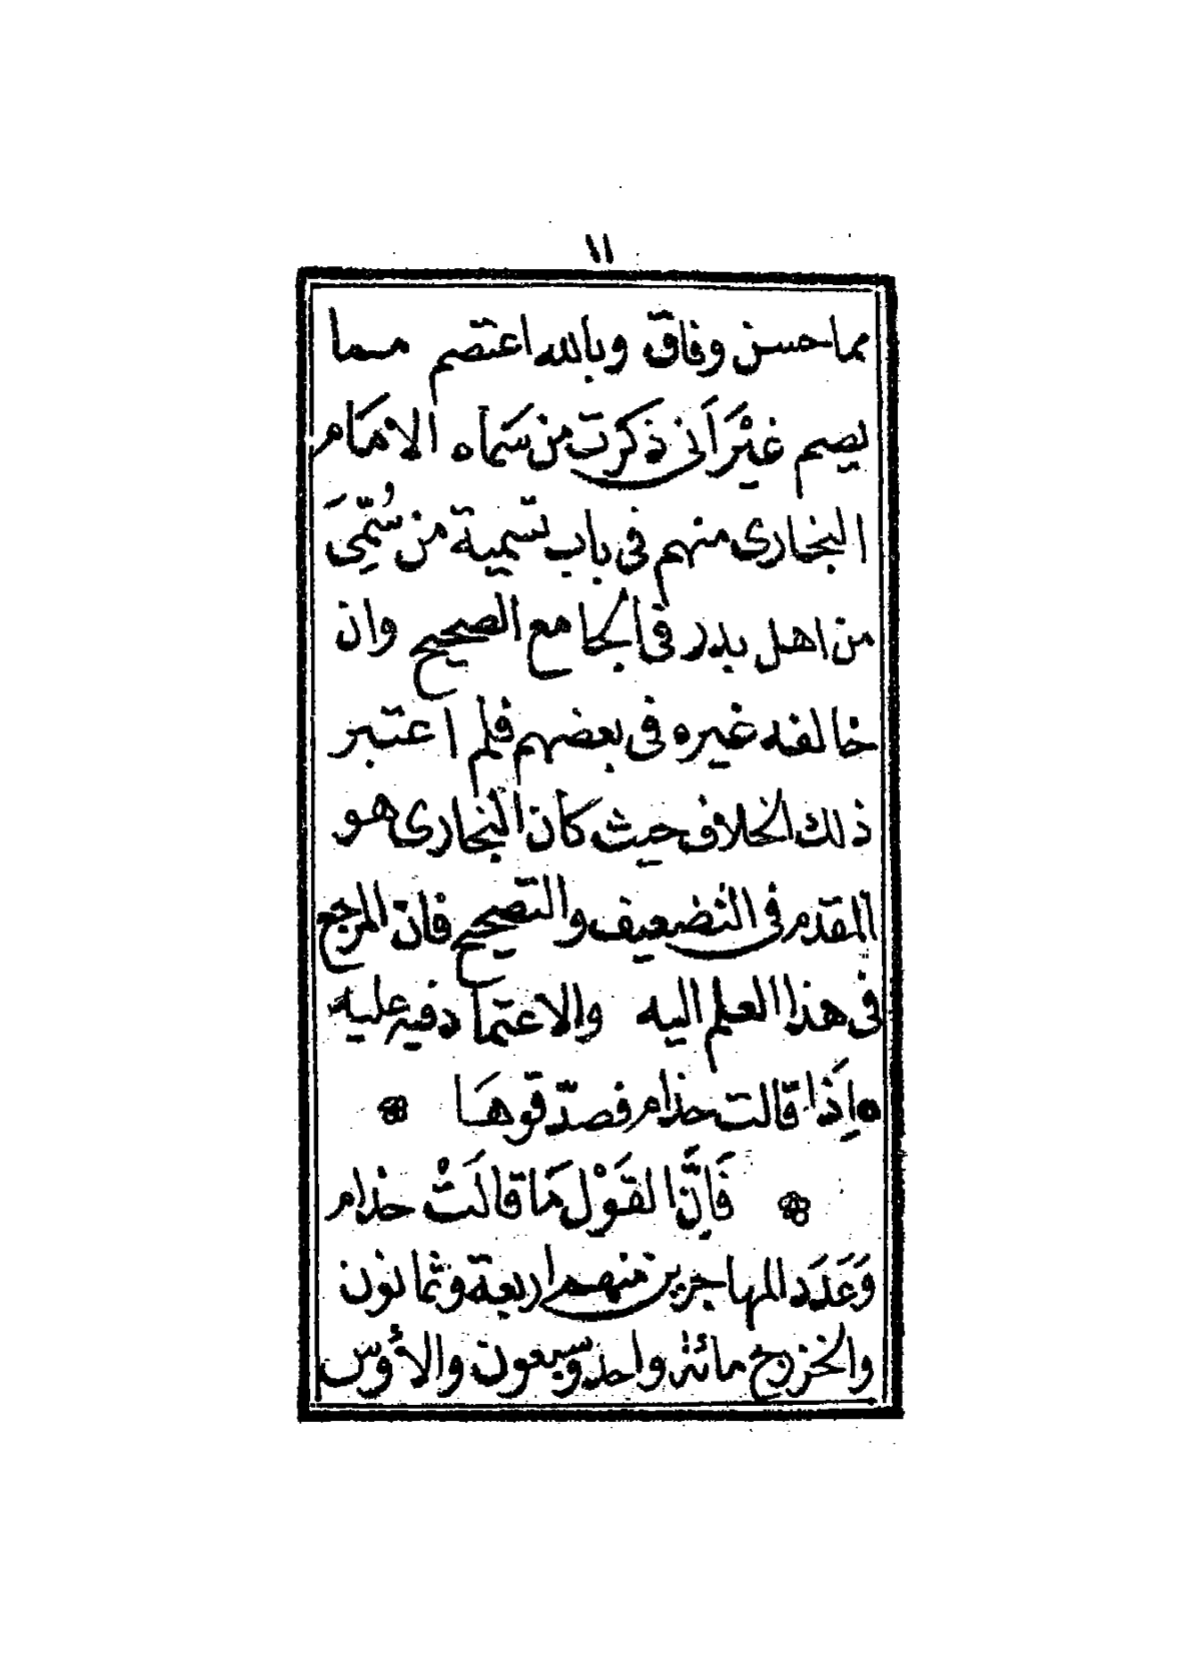 ١١
مما حسن وفاق وبالله اعتصم مما
يصم غَيْرَ اَنى ذكرت من سَمَاه الامَام
البخارى منهم فى باب تسمية من سُمِّىَ
من اهل بدر فى الجامع الصحيح وان
خالفه غيره فى بعضهم فلم اعتبر
ذلك الخلاف حيث كان البخارى هو
المقدم فى التضعيف والتصحيح فان المرجع
فى هذا العلم اليه والاعتماد فيه عليه
اِذَا قالت حذام فصدّقوهَا
فَاِنَّ القَوْل مَا قالَتْ حذام
وَعَدَد المهاجرين منهم اربعة وثمانون
والخزرج مائة واحد وسبعون والأوس